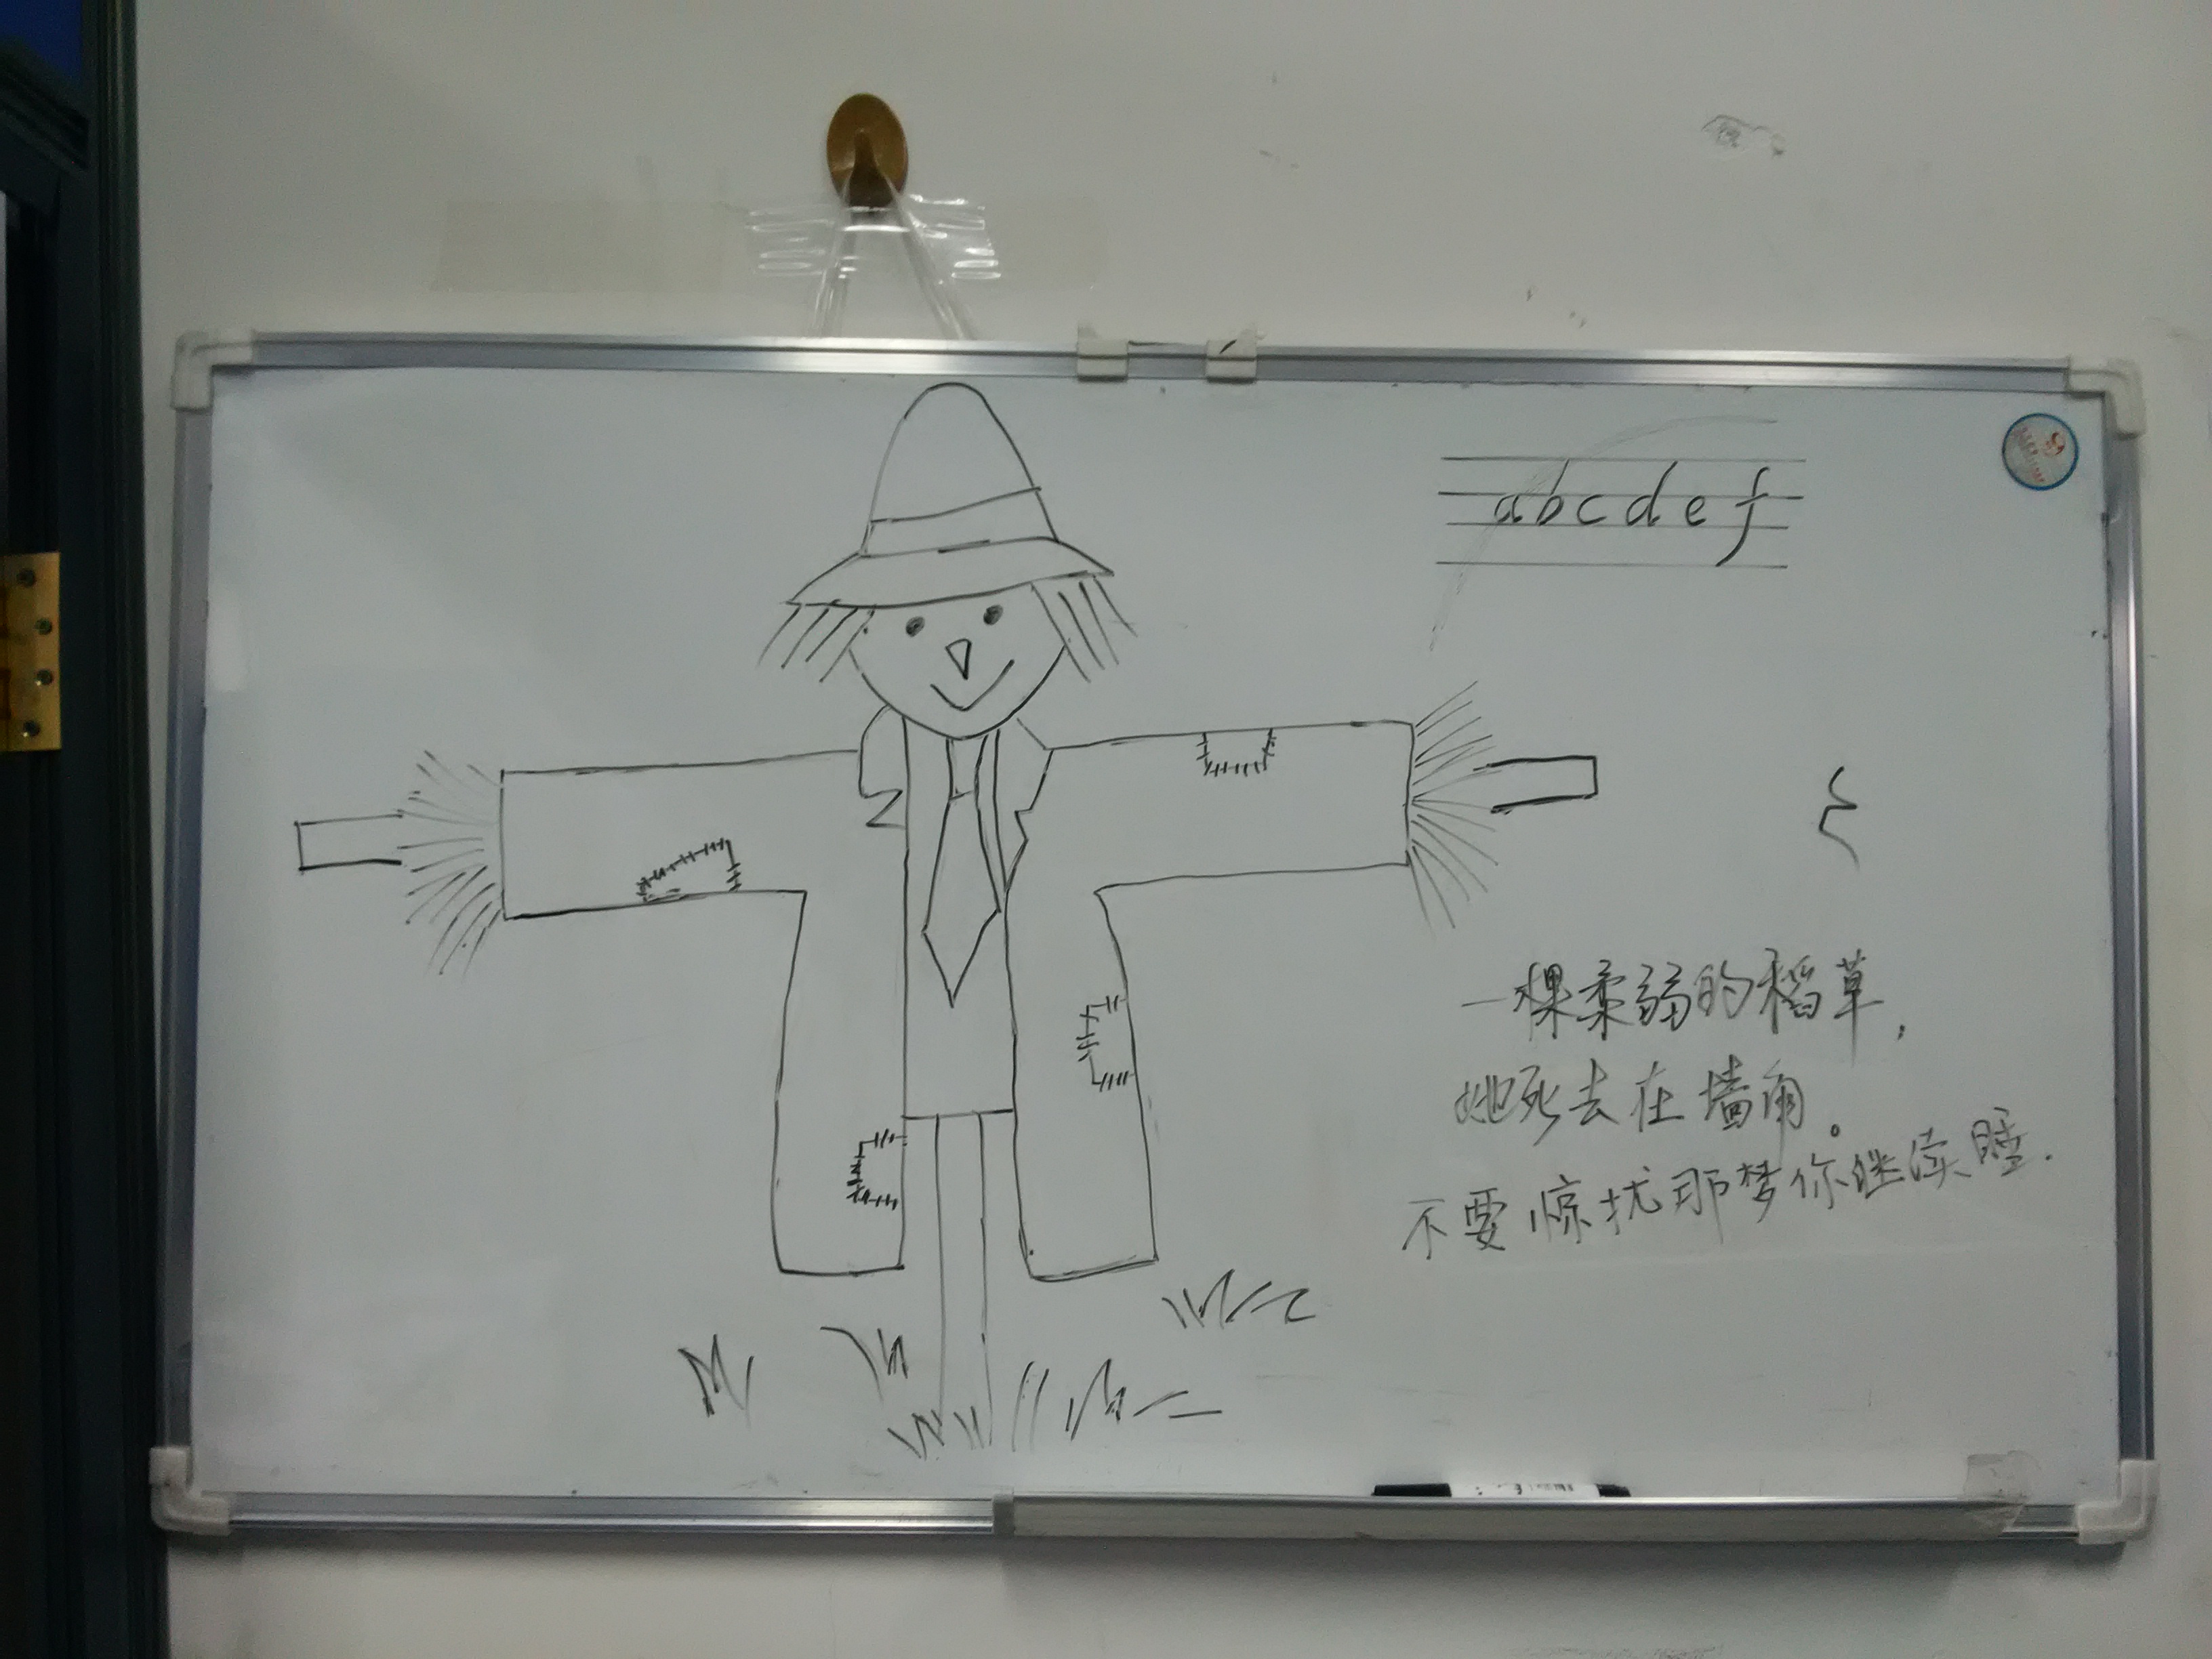 abcdef
一棵柔弱的稻草,
她死去在墙角。
不要惊扰那梦你继续睡.